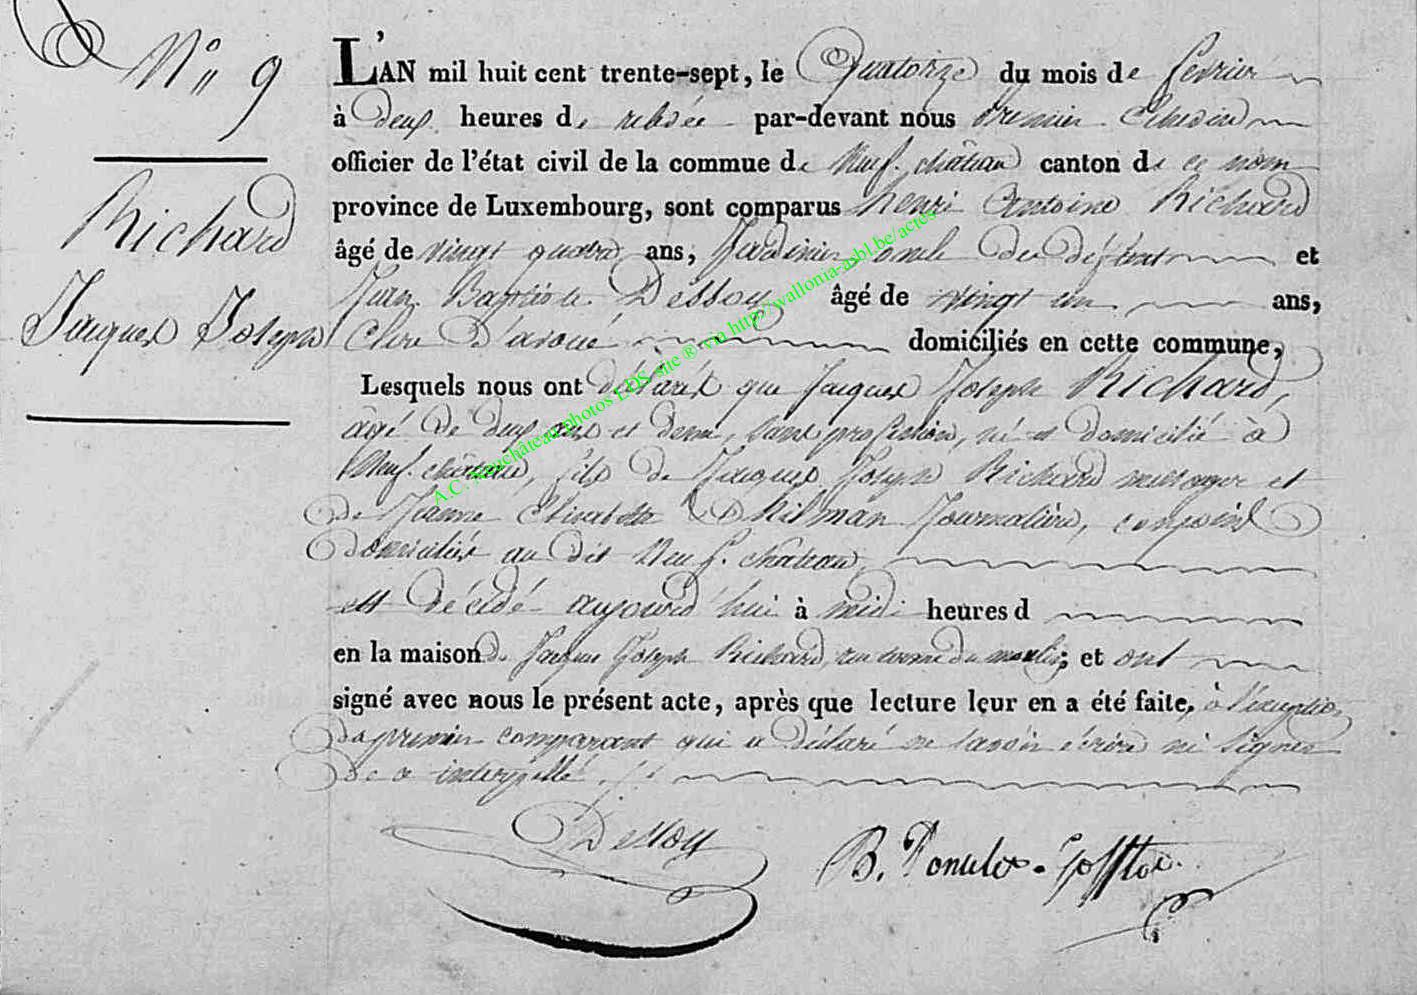 N° 9
Richard
Jacques Joseph
L'AN mil huit cent trente-sept, le Quatorze du mois de février
à deux heures de relevée par-devant nous Premier Echevin
officier de l'état civil de la commue de Neufchâteau canton de ce nom
province de Luxembourg, sont comparus Henri Antoine Richard
âgé de vingt quatre ans, Jardinier, oncle du défunt et
Jean Baptiste Dessoy âgé de vingt un ans,
Clerc d'avoué domiciliés en cette commune,
Lesquels nous ont déclaré que Jacques Joseph Richard,
âgé de deux ans et demi, sans profession, né et domicilié à
Neufchâteau, fils de Jacques Joseph Richardménager et
de Jeanne Elisabeth Journalière, conjoints
domiciliés au dit Neufchâteau
est décédé aujourd'hui à midi heures d
en la maison de Jacques Joseph Richard, et ont
signé avec nous le présent acte, après que lecture leur en a été faite, à l'exception
du premier comparant qui a déclaré ne savoir écrire ni signer
de ce interpellé.
Dessoy
A.C. Neufchâteau photos EDS site ® via http://wallonia-asbl.be/actes